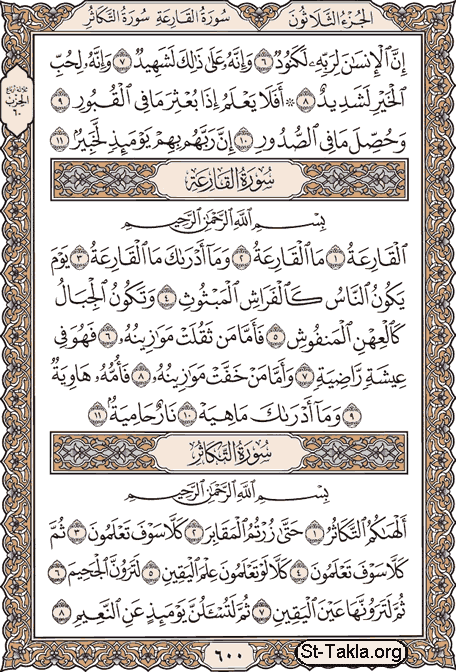 الجزء الثلاثون سورة القارعة سورة التكاثر
إِنَّ ٱلْإِنسَٰنَ لِرَبِّهِۦ لَكَنُودٌ ٦ وَإِنَّهُۥ عَلَىٰ ذَٰلِكَ لَشَهِيدٌ ٧ وَإِنَّهُۥ لِحُبِّ
ٱلْخَيْرِ لَشَدِيدٌ ٨ ۞ أَفَلَا يَعْلَمُ إِذَا بُعْثِرَ مَا فِى ٱلْقُبُورِ ٩
وَحُصِّلَ مَا فِى ٱلصُّدُورِ ١٠ إِنَّ رَبَّهُم بِهِمْ يَوْمَئِذٍ لَّخَبِيرٌۢ ١١
سُورَةُ القَارِعَةِ
بِسْمِ ٱللَّهِ ٱلرَّحْمَٰنِ ٱلرَّحِيمِ
ٱلْقَارِعَةُ ١ مَا ٱلْقَارِعَةُ ٢ وَمَآ أَدْرَىٰكَ مَا ٱلْقَارِعَةُ ٣ يَوْمَ
يَكُونُ ٱلنَّاسُ كَٱلْفَرَاشِ ٱلْمَبْثُوثِ ٤ وَتَكُونُ ٱلْجِبَالُ
كَٱلْعِهْنِ ٱلْمَنفُوشِ ٥ فَأَمَّا مَن ثَقُلَتْ مَوَٰزِينُهُۥ ٦ فَهُوَ فِى
عِيشَةٍ رَّاضِيَةٍ ٧ وَأَمَّا مَنْ خَفَّتْ مَوَٰزِينُهُۥ ٨ فَأُمُّهُۥ هَاوِيَةٌ
٩ وَمَآ أَدْرَىٰكَ مَا هِيَهْ ١٠ نَارٌ حَامِيَةٌۢ ١١
سُورَةُ التَّكَاثُرِ
بِسْمِ ٱللَّهِ ٱلرَّحْمَٰنِ ٱلرَّحِيمِ
أَلْهَىٰكُمُ ٱلتَّكَاثُرُ ١ حَتَّىٰ زُرْتُمُ ٱلْمَقَابِرَ ٢ كَلَّا سَوْفَ تَعْلَمُونَ ٣ ثُمَّ
كَلَّا سَوْفَ تَعْلَمُونَ ٤ كَلَّا لَوْ تَعْلَمُونَ عِلْمَ ٱلْيَقِينِ ٥ لَتَرَوُنَّ ٱلْجَحِيمَ ٦
ثُمَّ لَتَرَوُنَّهَا عَيْنَ ٱلْيَقِينِ ٧ ثُمَّ لَتُسْـَٔلُنَّ يَوْمَئِذٍ عَنِ ٱلنَّعِيمِ ٨
الحزب
٦٠
٦٠٠
St-Takla.org